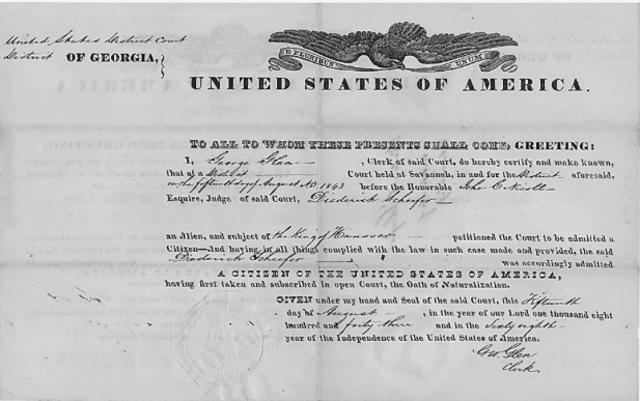 United States District Court
District OF GEORGIA,
E PLURIBUS UNUM
UNITED STATES OF AMERICA.
TO ALL TO WHOM THESE PRESENTS SHALL COME, GREETING:
I, George Glen , Clerk of said Court, do hereby certify and make known,
that at a District Court held at Savannah, in and for the District aforesaid,
on the fifteenth day of August A.D. 1843 before the Honorable John C Nicoll
Esquire, Judge of said Court, Diederick Scheefer
an Alien, and subject of the King of Hanover petitioned the Court to be admitted a
Citizen—And having in all things complied with the law in such case made and provided, the said
Diederick Scheefer was accordingly admitted
A CITIZEN OF THE UNITED STATES OF AMERICA,
having first taken and subscribed in open Court, the Oath of Naturalization.
GIVEN under my hand and Seal of the said Court, this Fifteenth
day of August , in the year of our Lord one thousand eight
hundred and forty three and in the Sixty eighth
year of the Independence of the United States of America.
Geo. Glen
Clerk